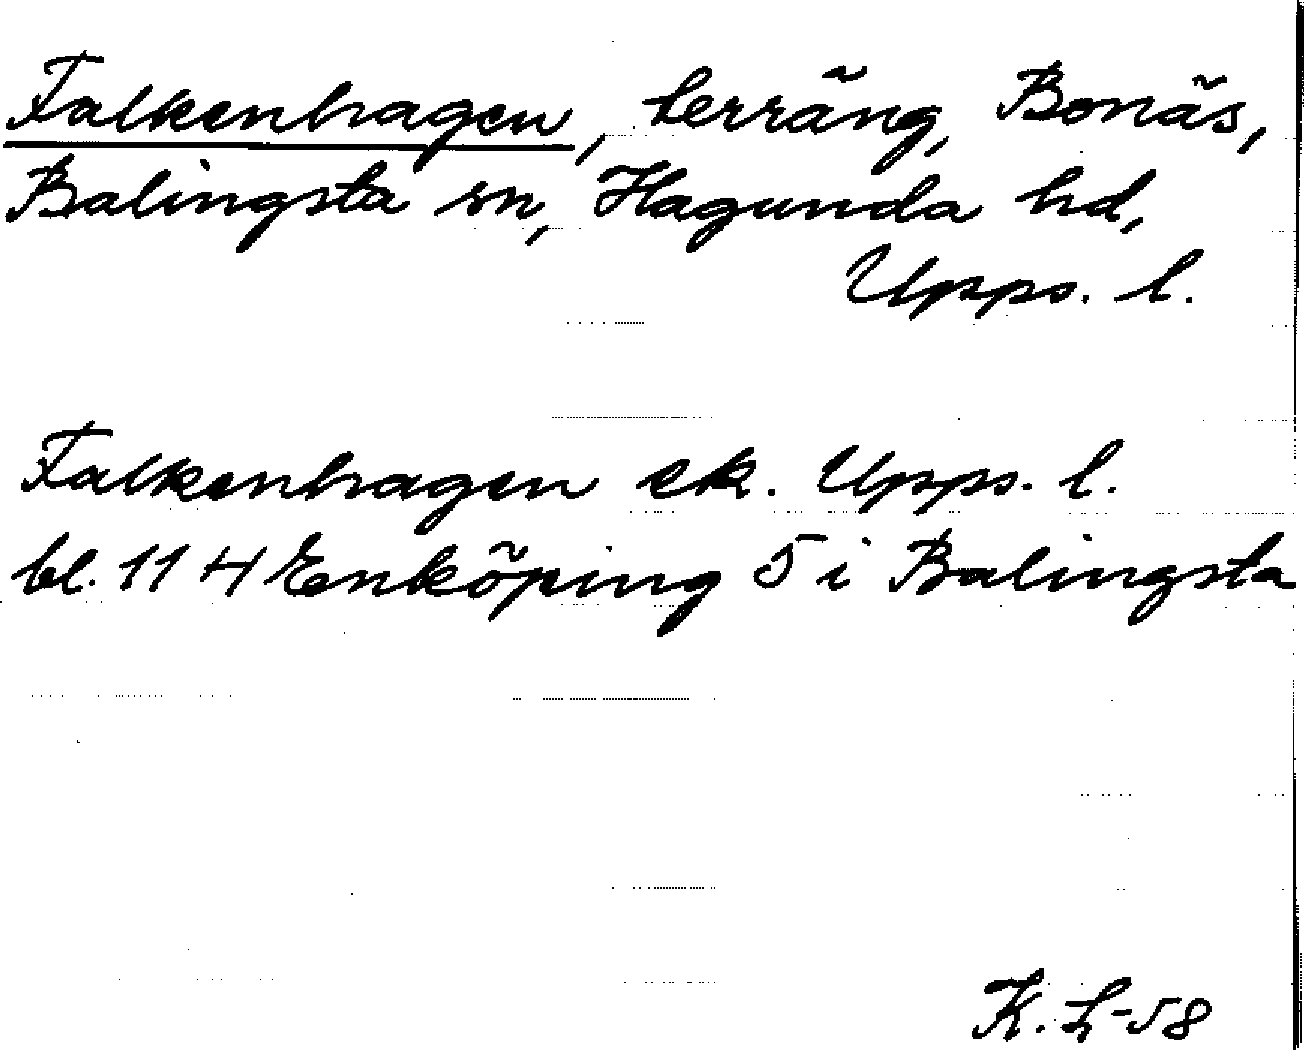 Falkenhagen, terräng, Bonäs,
Balingsta sn, Hagunda hd,
Upps. l.
Falkenhagen ek. Upps. l.
bl. 114 Enköping 5 i Balingsta
K. L-58